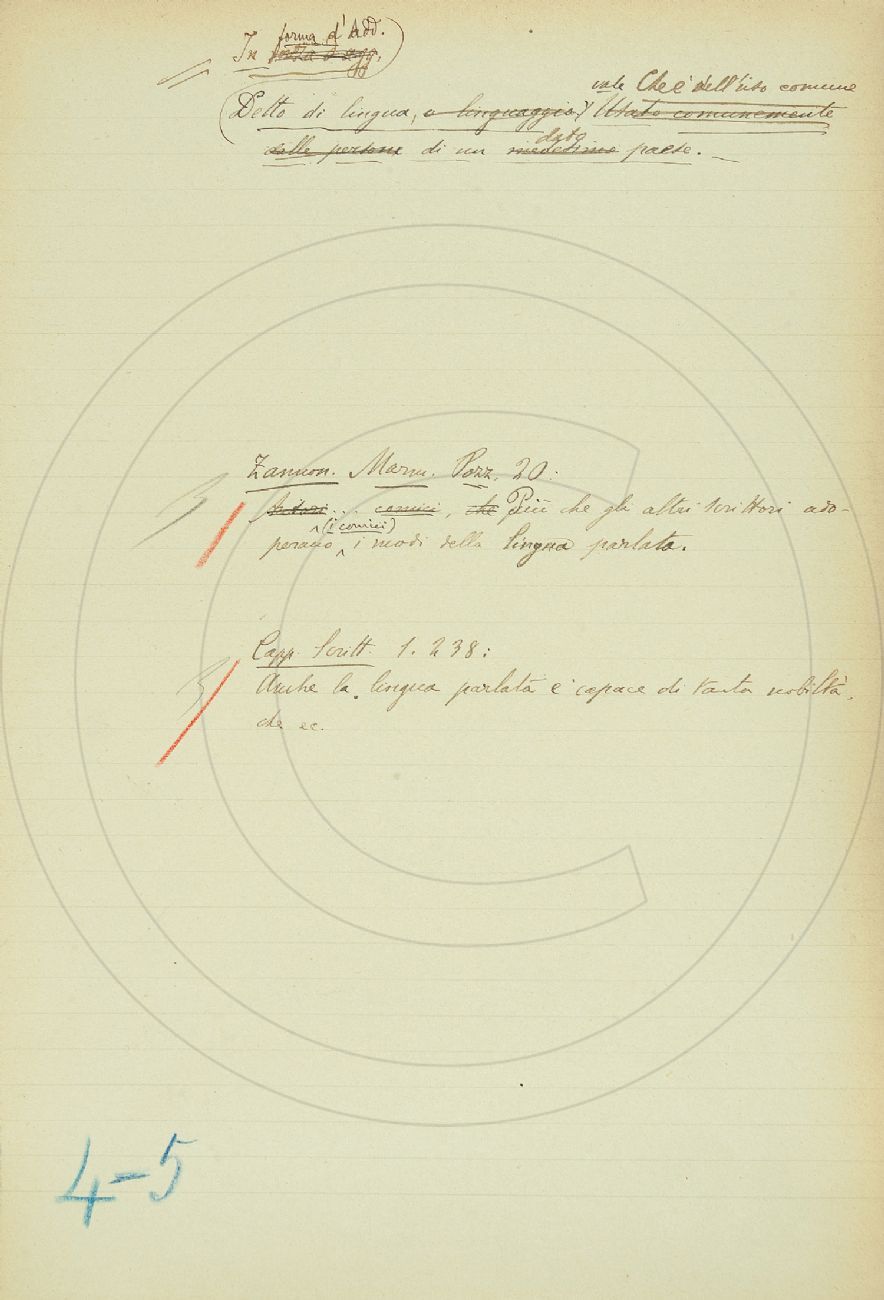 forma d'Add.
In forza d'agg.
vale Che è dell'uso comune
Detto di lingua, o linguaggio, Usato comunemente
dato
dalle persone di un medesimo paese. —
Zannon. Marm. Pozz. 20:
Autori ... comici, che Più che gli altri scrittori ado-
(i comici)
perano i modi della lingua parlata.
Capp. Scritt. 1. 238:
Anche la lingua parlata è capace di tanta nobiltà,
che ec.
4-5